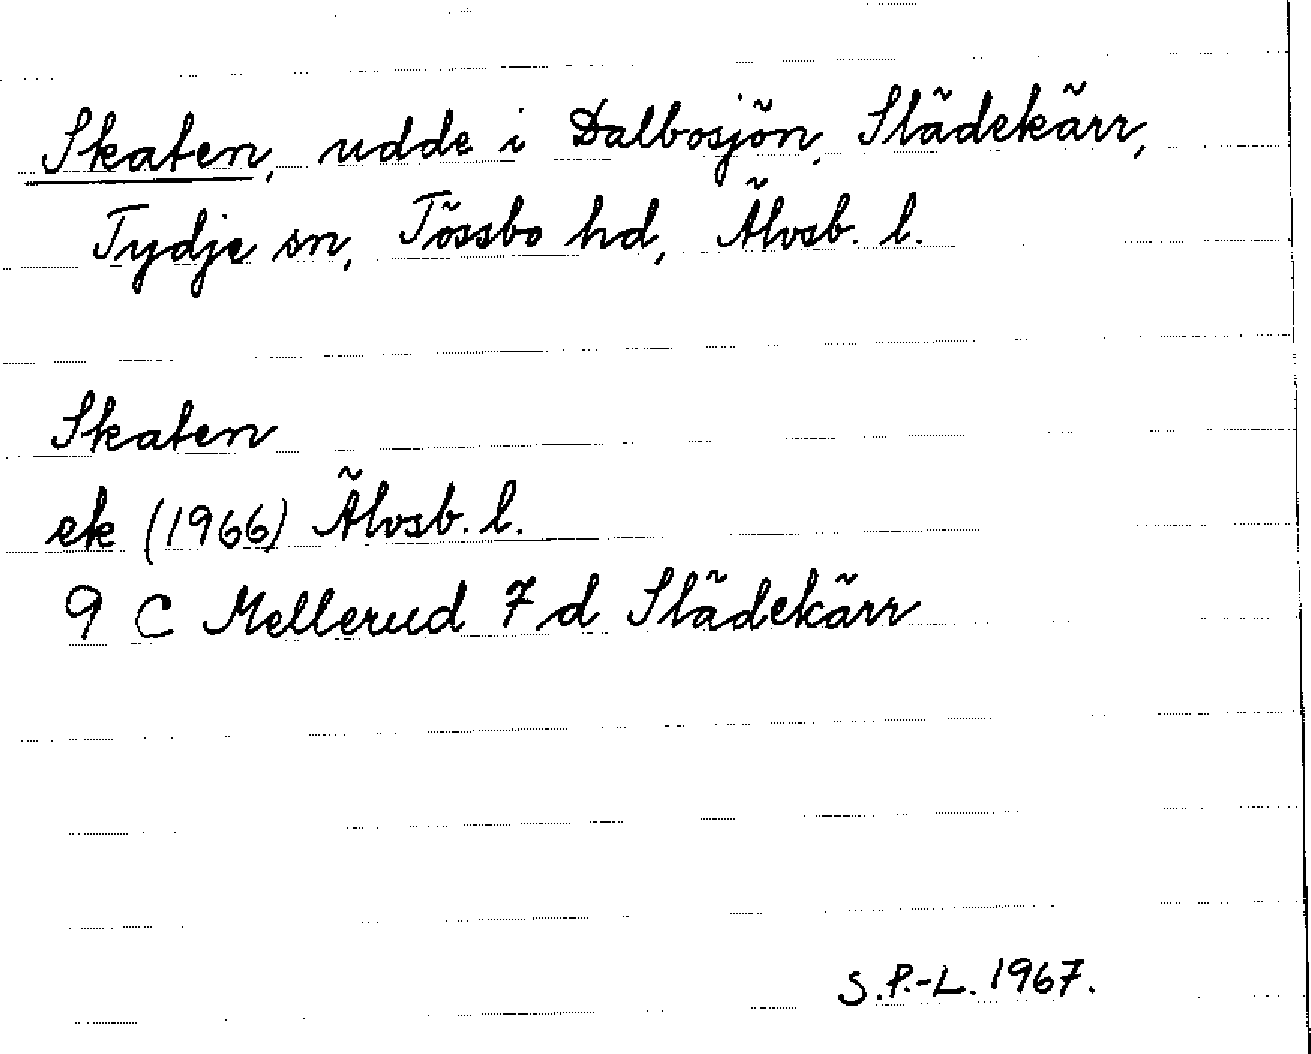 Skaten, udde i Dalbosjön, Slädekärr,
Tydje sn, Tössbo hd, Älvsb. l.
Skaten
ek (1966) Älvsb. l.
9 C Mellerud 7 d Slädekärr
S.P.-L. 1967.